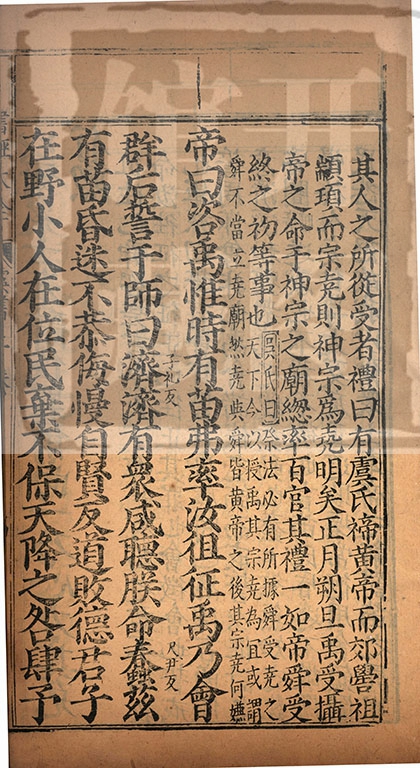 其人之所從受者禮曰有虞氏禘黃帝而郊嚳祖
顓頊而宗堯則神宗爲堯明矣正月朔旦禹受攝
帝之命于神宗之廟緫率百官其禮一如帝舜受
終之初等事也
吳氏曰祭法必有所據舜受堯之
天下今以授禹其宗堯為宜或謂
舜不當立堯廟然堯與舜皆黃帝之後其宗堯何嫌
帝曰咨禹惟時有苗弗率汝徂征禹乃會
群后誓于師曰濟濟
子礼反
有衆咸聽朕命蠢
尺尹反
茲
有苗昏迷不恭侮慢自賢反道敗德君子
在野小人在位民棄不保天降之咎肆予